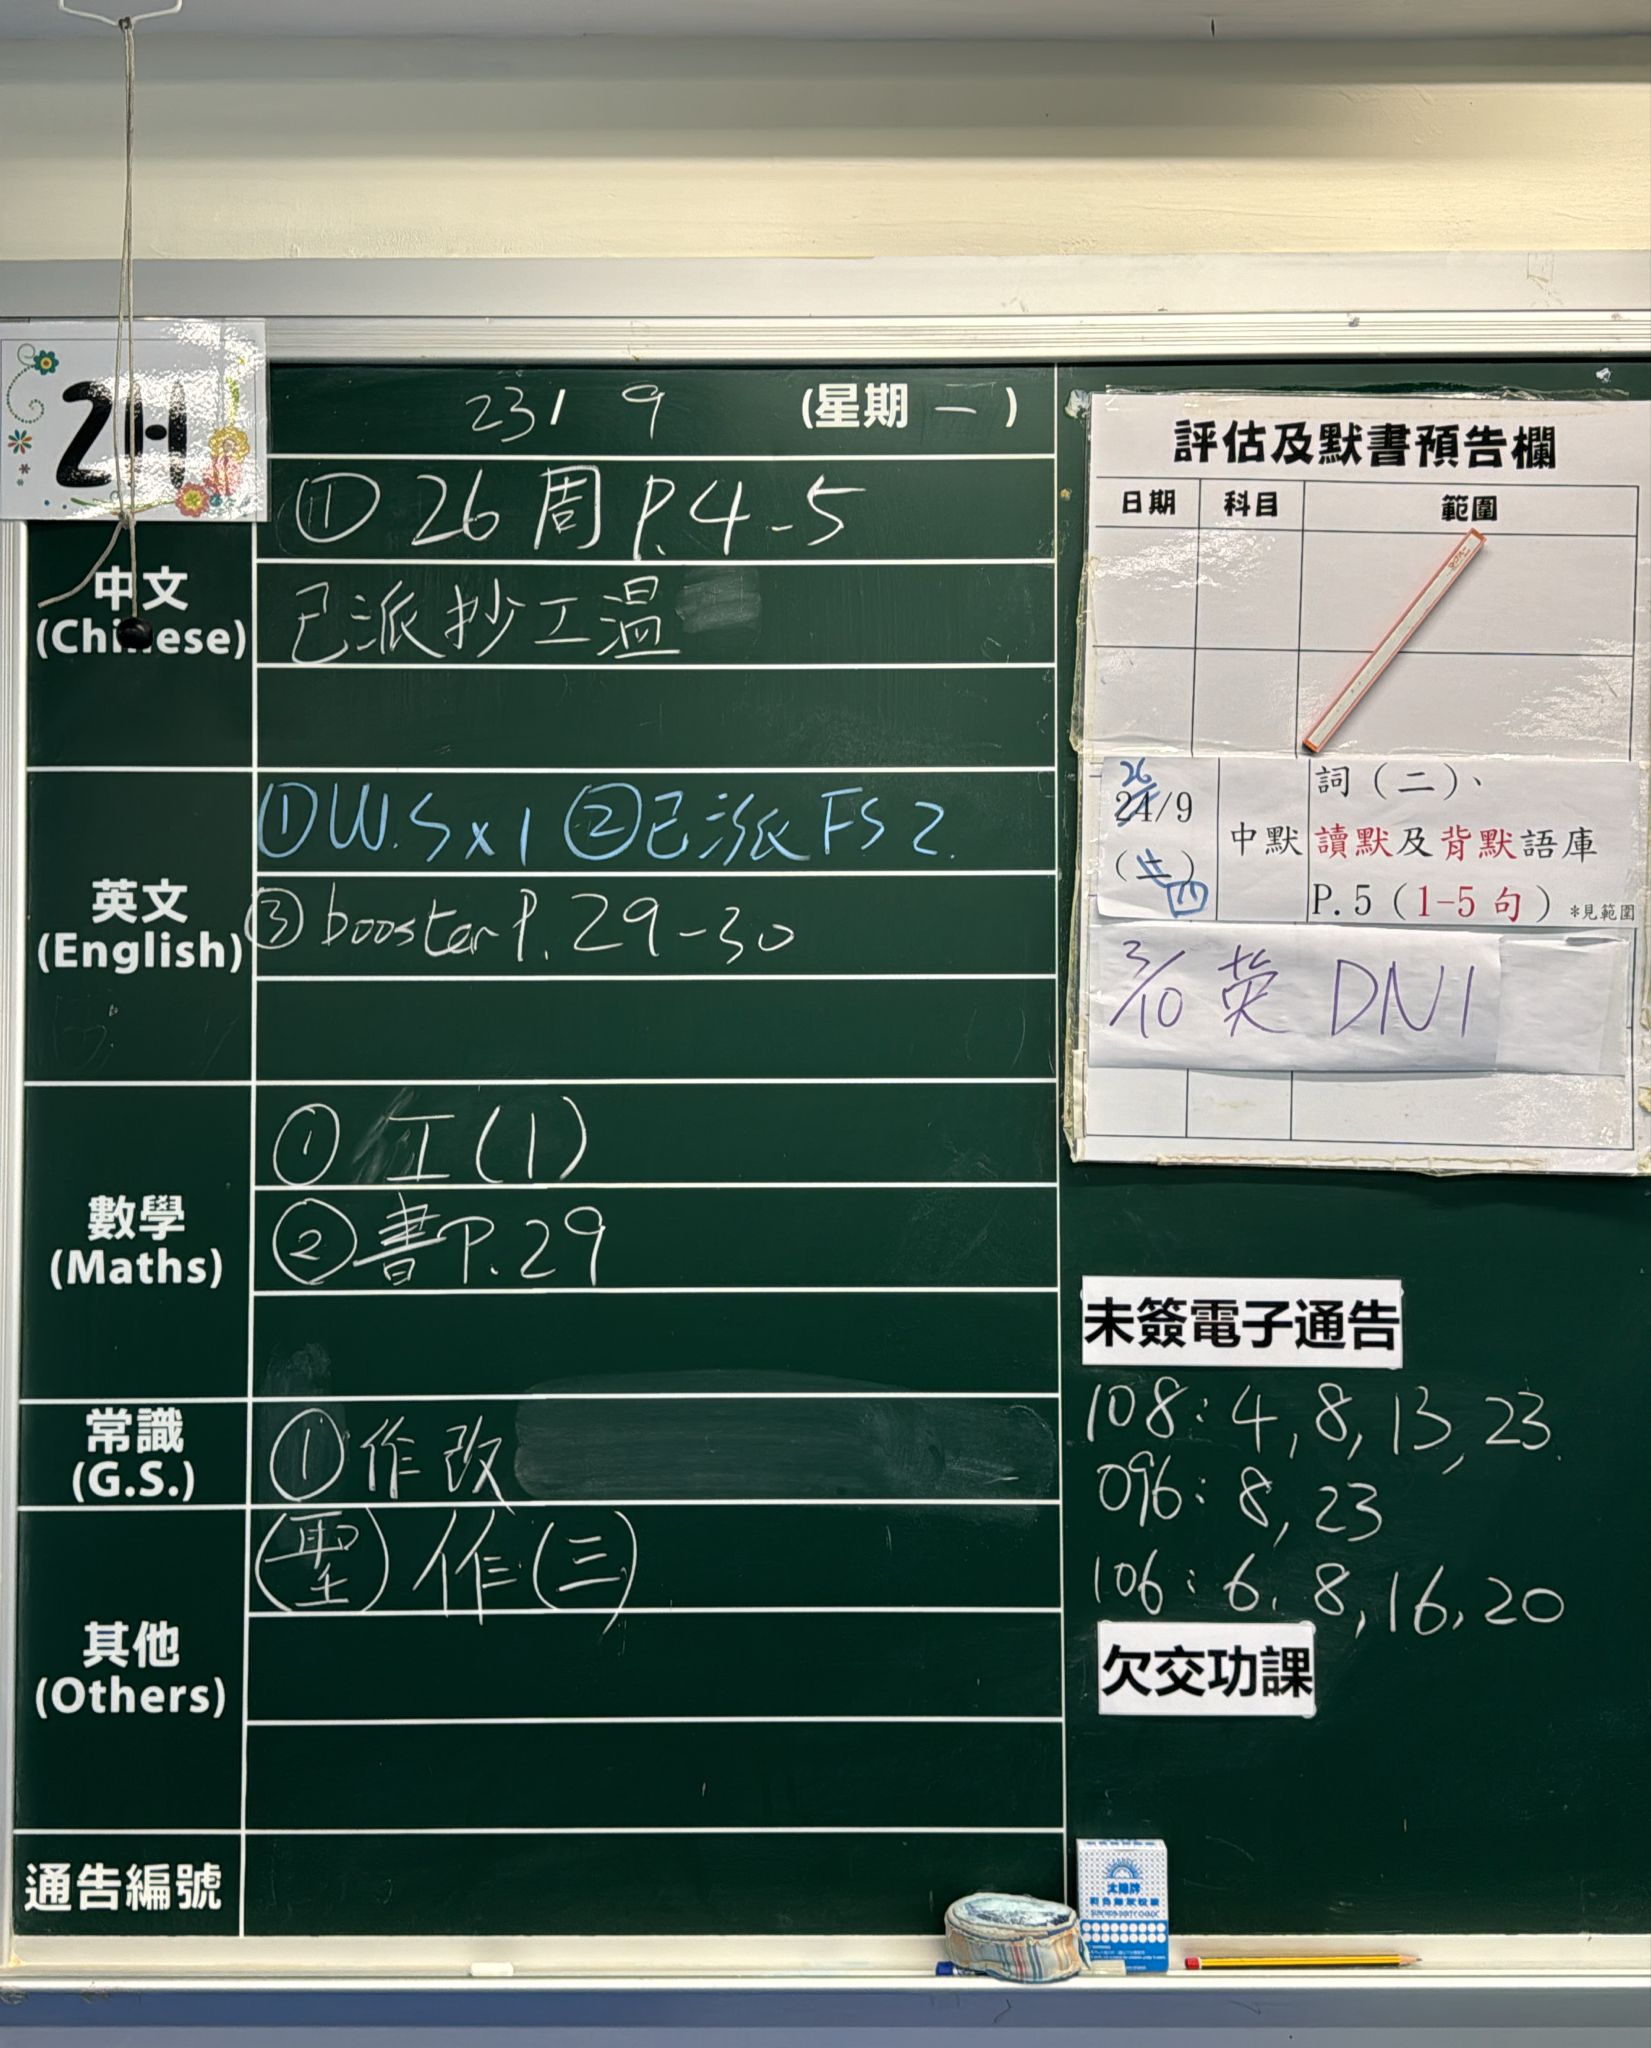 2H
23/9 (星期一)
① 26 周 P.4-5
中文
(Chinese)
已派抄工溫
① W.S x 1 ② 已派 FS 2.
英文
(English)
③ booster P. 29-30
① 工(1)
數學
(Maths)
② 書 P.29
常識
(G.S.)
① 作改
(聖) 作(三)
其他
(Others)
通告編號
評估及默書預告欄
日期 科目 範圍
26
24/9
(二)
四
中默
詞（二）、
讀默及背默語庫
P.5（1-5句）*見範圍
3/10 英 DN1
未簽電子通告
108: 4, 8, 13, 23
096: 8, 23
106: 6, 8, 16, 20
欠交功課
太陽牌